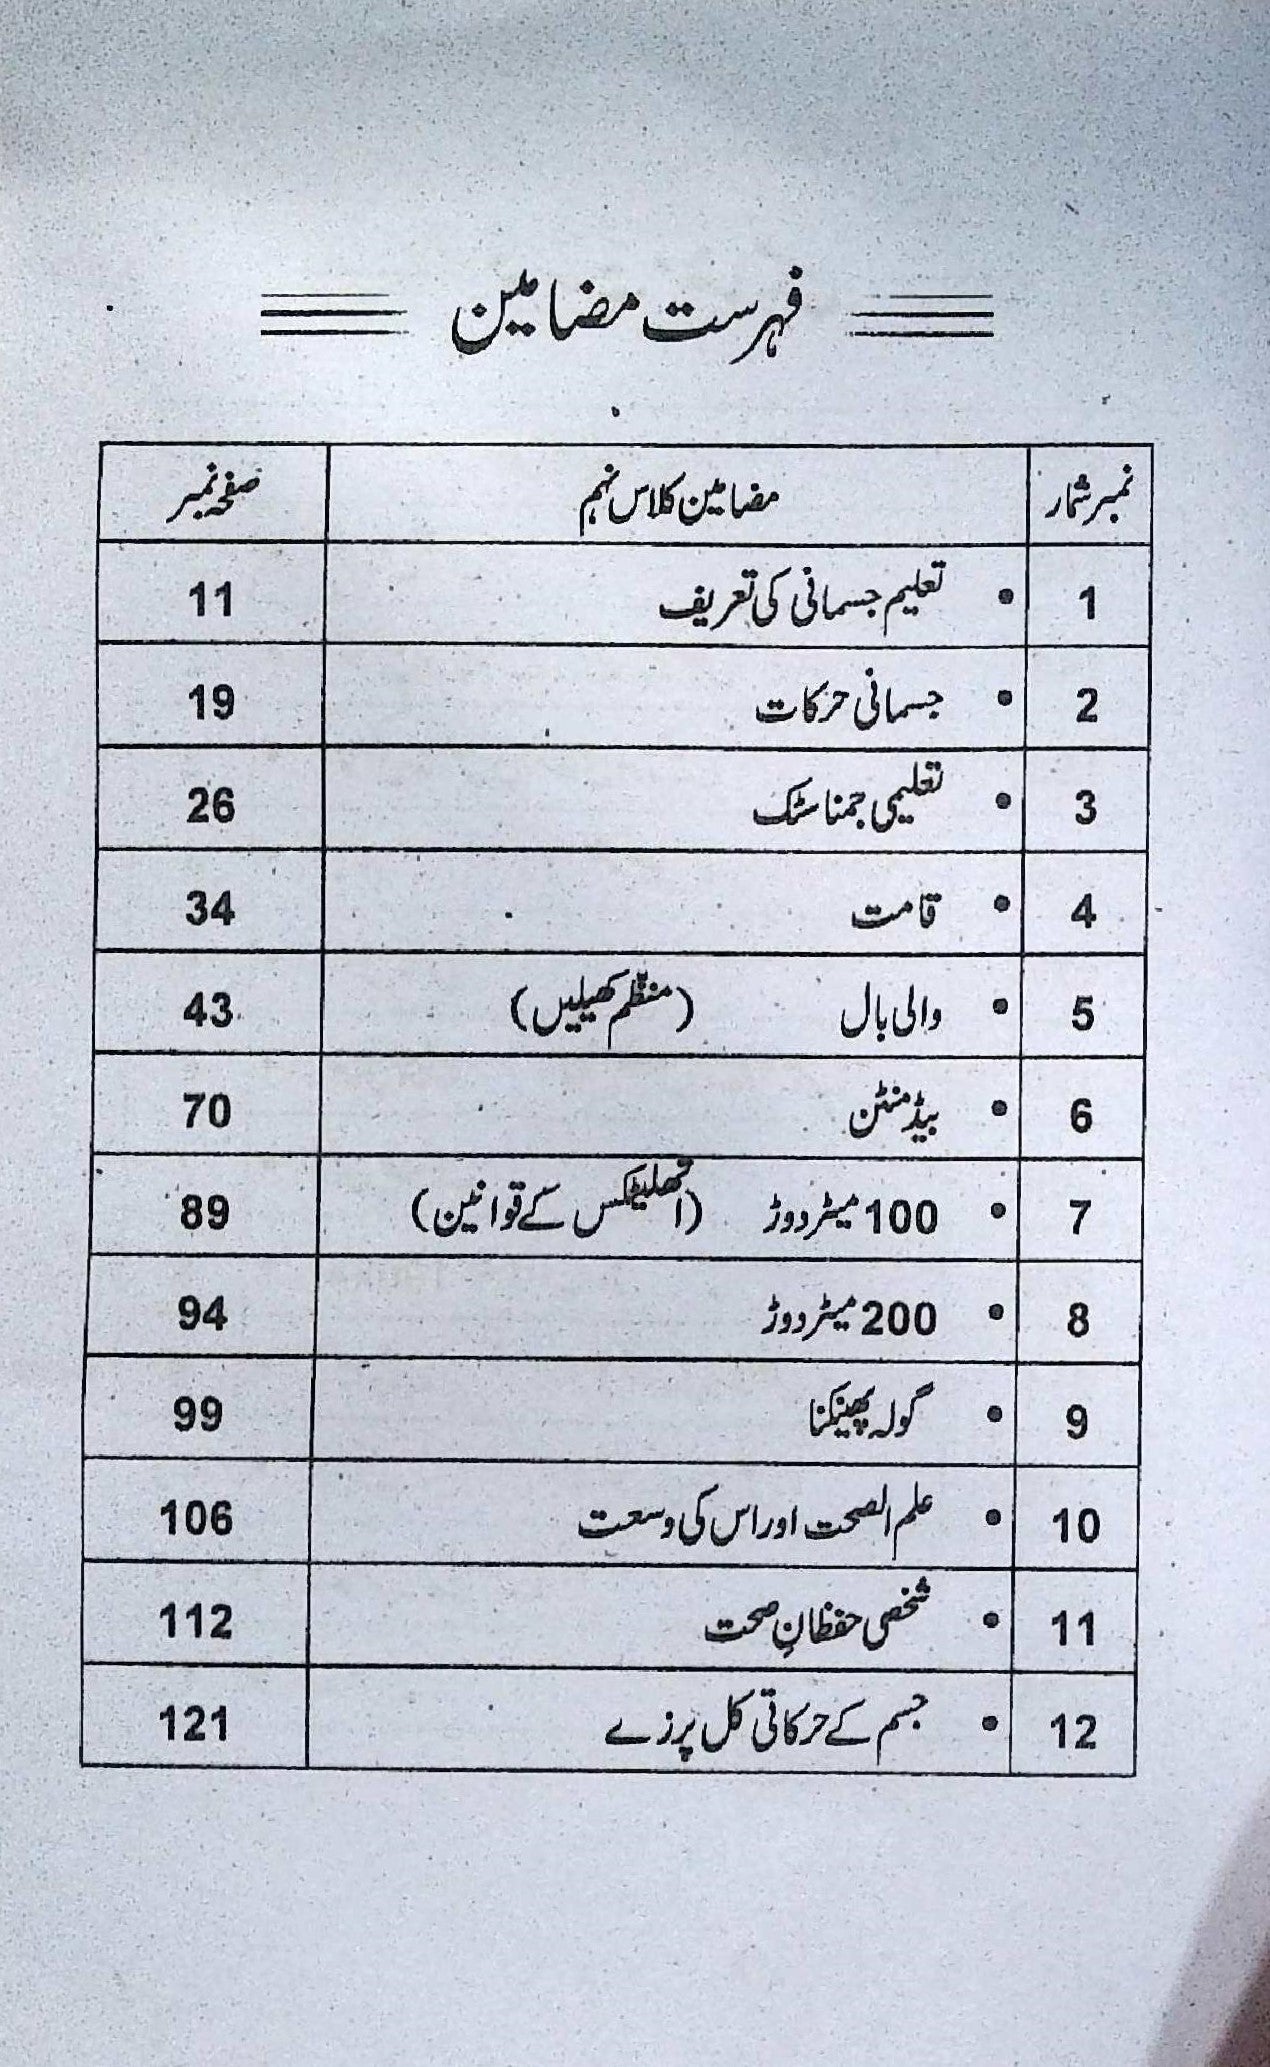 فہرست مضامین
نمبر شمار مضامین کلاس نہم صفحہ نمبر
1 • تعلیم جسمانی کی تعریف 11
2 • جسمانی حرکات 19
3 • تعلیمی جمناسٹک 26
4 • قامت 34
5 • والی بال (منظّم کھیلیں) 43
6 • بیڈمنٹن 70
7 • 100 میٹر دوڑ (اتھلیٹکس کے قوانین) 89
8 • 200 میٹر دوڑ 94
9 • گولہ پھینکنا 99
10 • علم الصحت اور اس کی وسعت 106
11 • شخصی حفظانِ صحت 112
12 • جسم کے حرکاتی کل پرزے 121